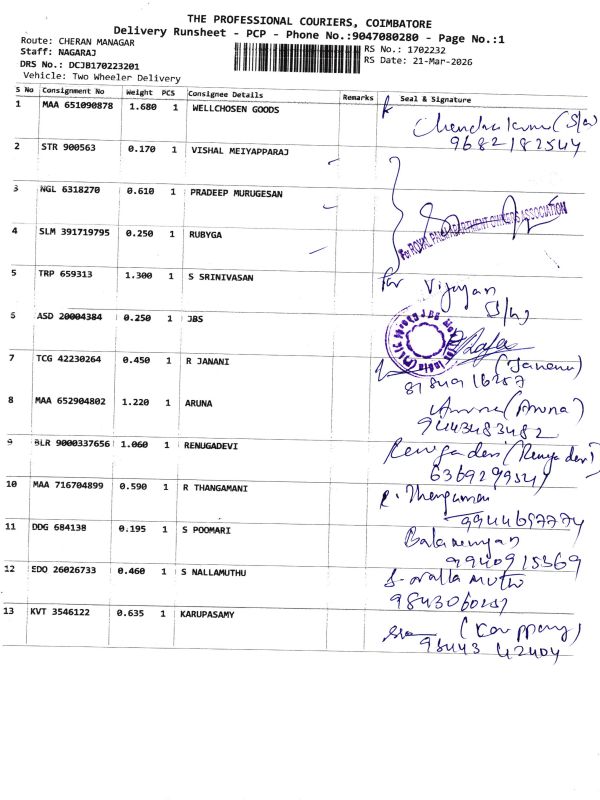 THE PROFESSIONAL COURIERS, COIMBATORE
Delivery Runsheet - PCP - Phone No.:9047080280 - Page No.:1
Route: CHERAN MANAGAR
RS No.: 1702232
Staff: NAGARAJ
RS Date: 21-Mar-2026
DRS No.: DCJB170223201
Vehicle: Two Wheeler Delivery
S No Consignment No Weight PCS Consignee Details Remarks Seal & Signature
1 MAA 651090878 1.680 1 WELLCHOSEN GOODS
9682182544
2 STR 900563 0.170 1 VISHAL MEIYAPPARAJ
3 NGL 6318270 0.610 1 PRADEEP MURUGESAN
For ROYAL PALM APARTMENT OWNERS ASSOCIATION
4 SLM 391719795 0.250 1 RUBYGA
5 TRP 659313 1.300 1 S SRINIVASAN
For Vijayan
6 ASD 20004384 0.250 1 JBS
7 TCG 42230264 0.450 1 R JANANI
(Janani)
8 MAA 652904802 1.220 1 ARUNA
Aruna (Aruna)
9443483482
9 BLR 9000337656 1.060 1 RENUGADEVI
Renugadevi (Renugadevi)
10 MAA 716704899 0.590 1 R THANGAMANI
R. Thangamani
11 DDG 684138 0.195 1 S POOMARI
12 EDO 26026733 0.460 1 S NALLAMUTHU
S. Nallamuthu
13 KVT 3546122 0.635 1 KARUPASAMY
98443 42404